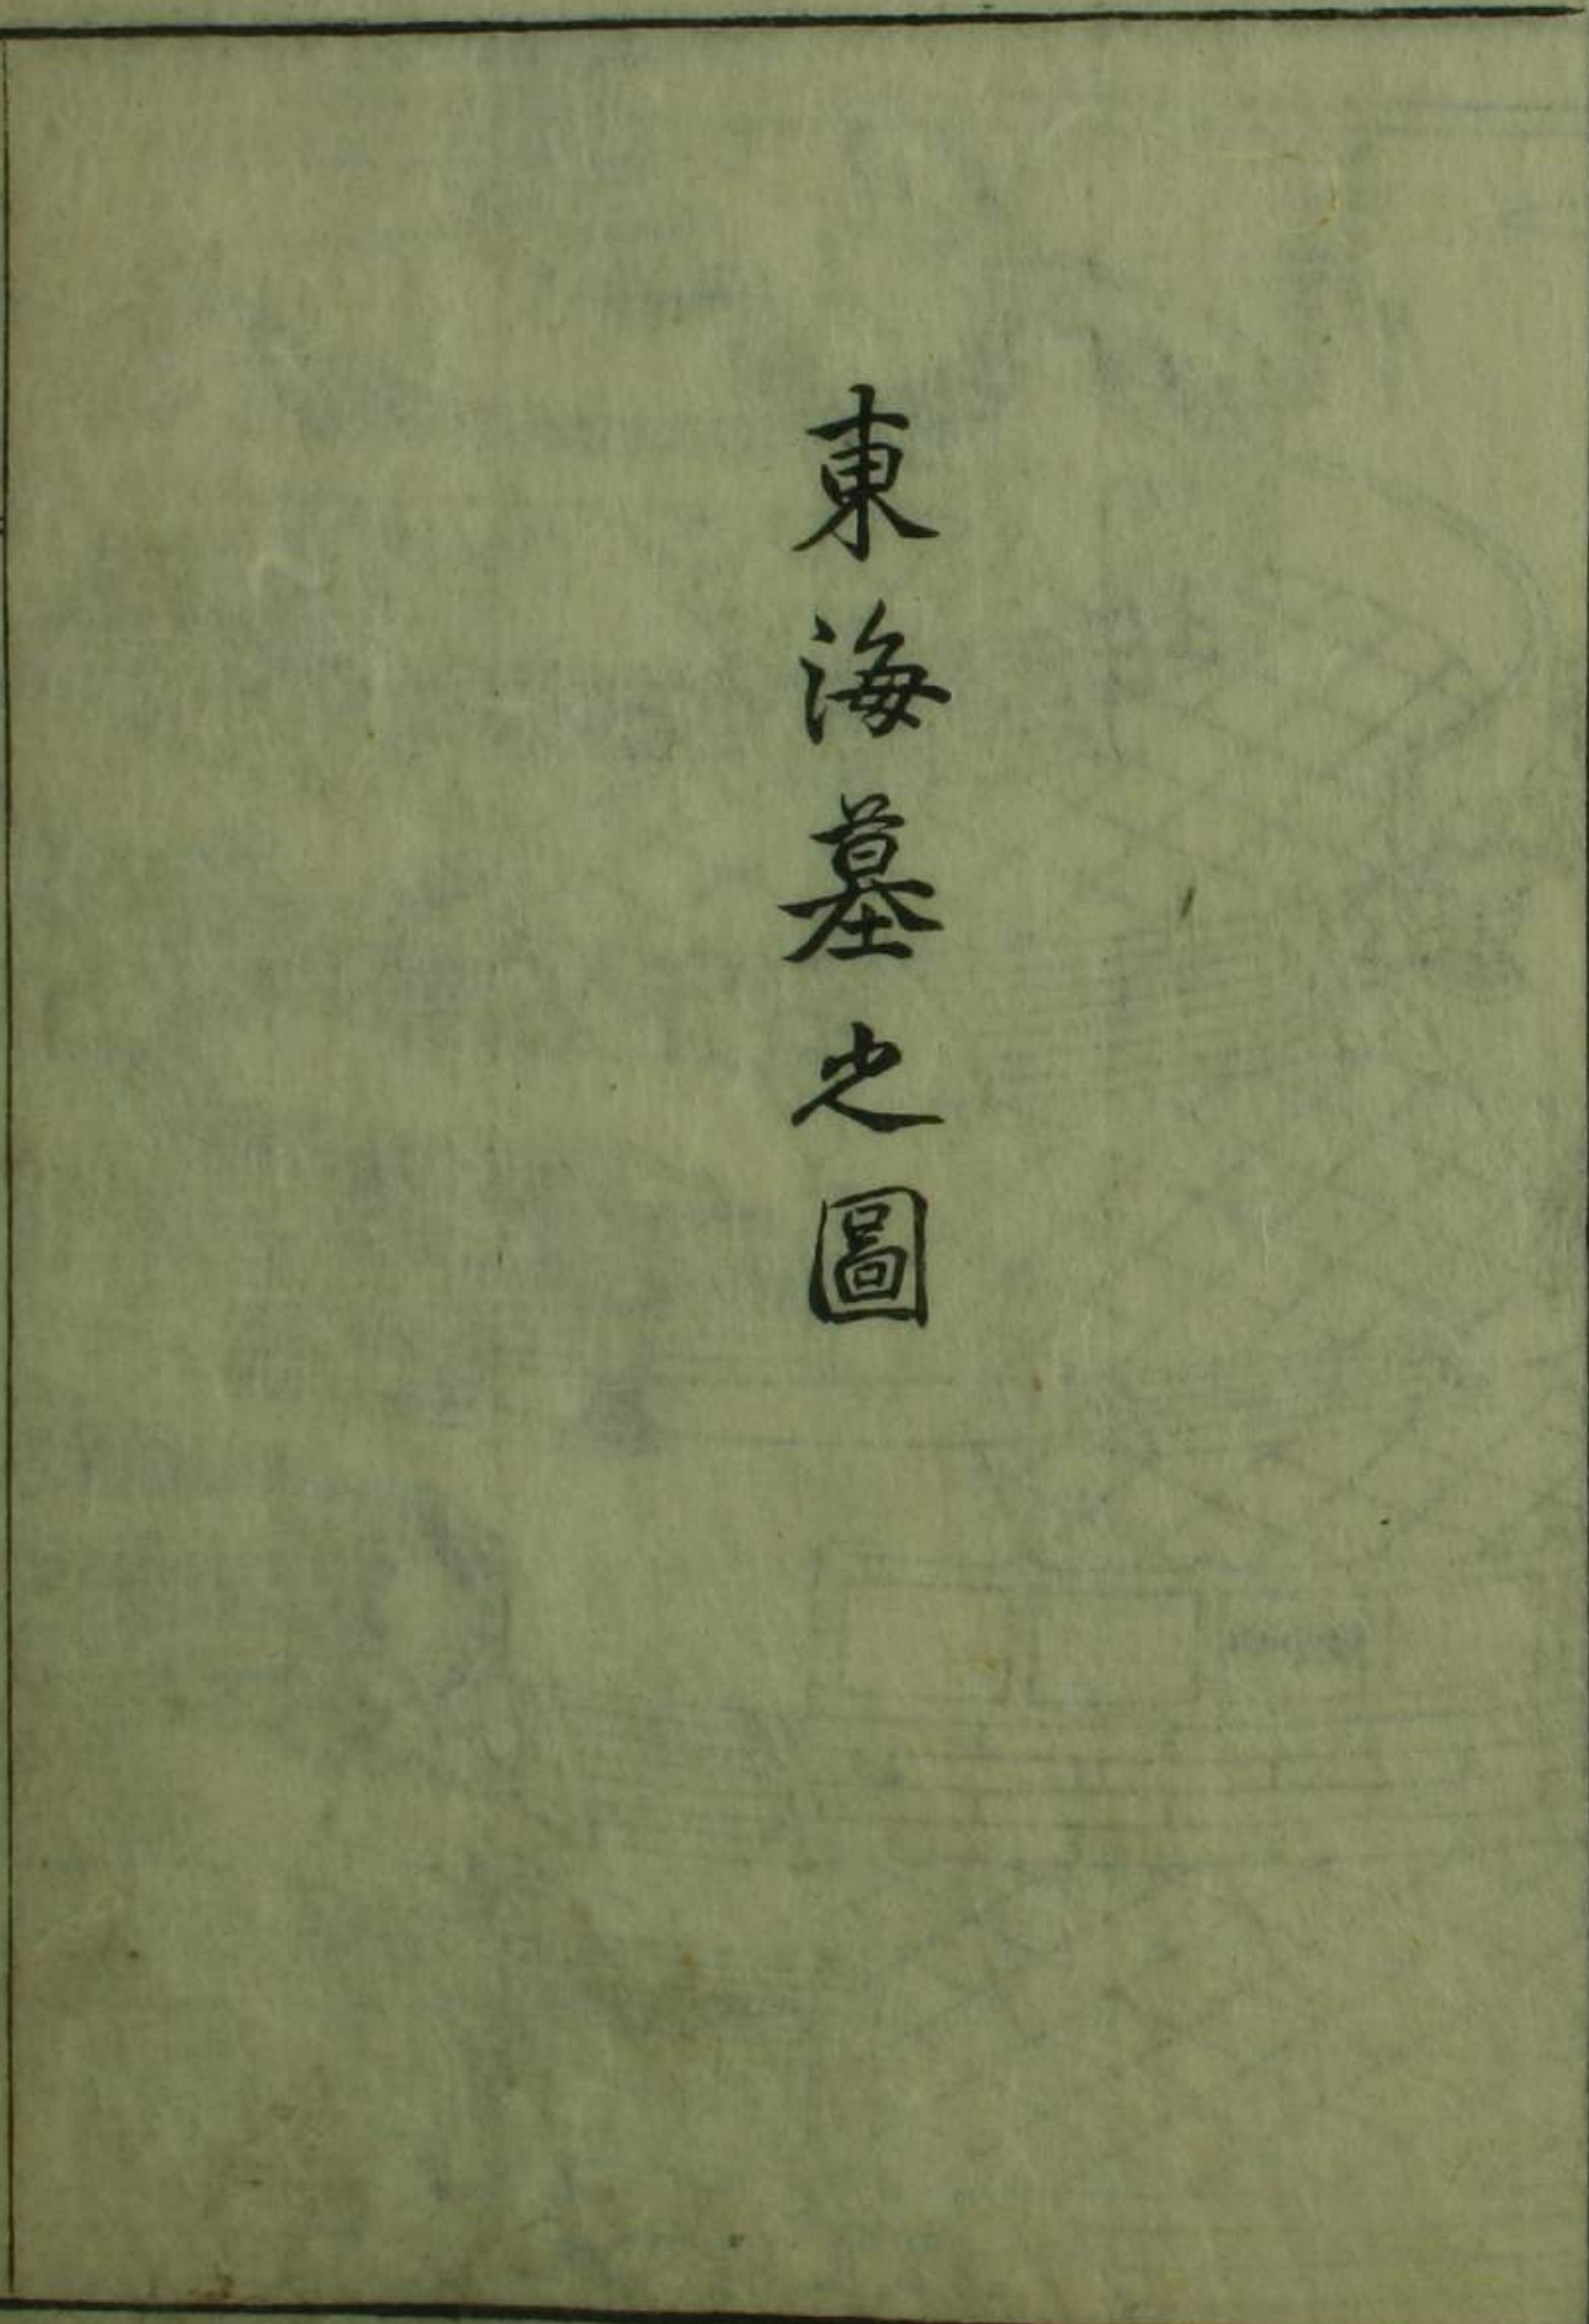 東海墓之圖